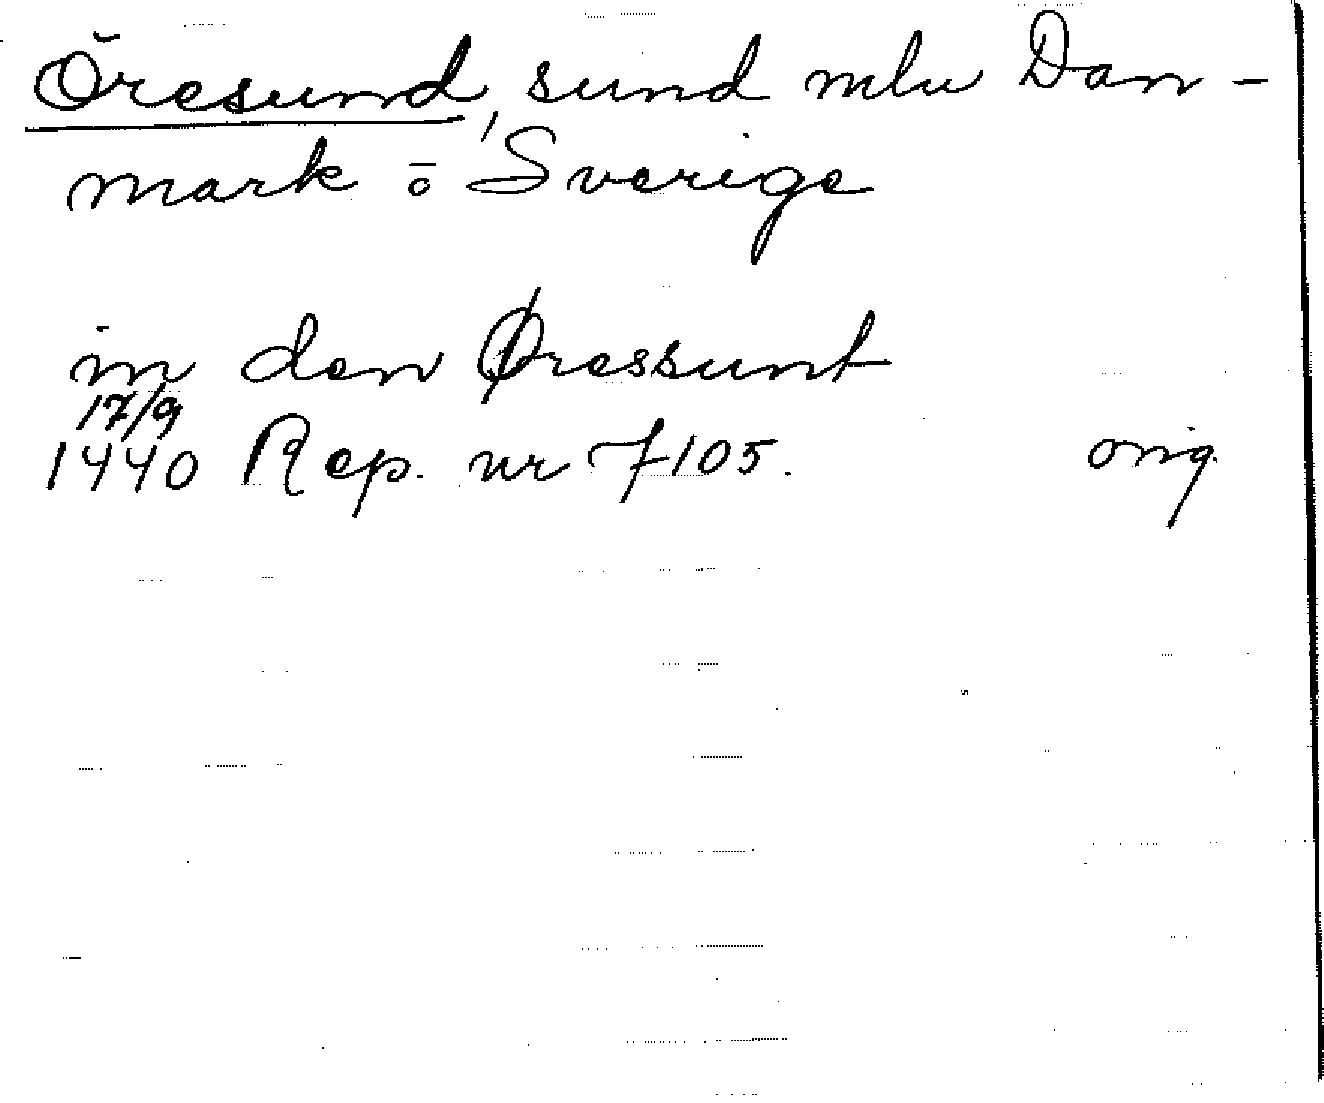 Öresund, sund mlu Dan-
mark ō Sverige
in den Øressunt
17/9
1440 Rep. nr 7105. orig.